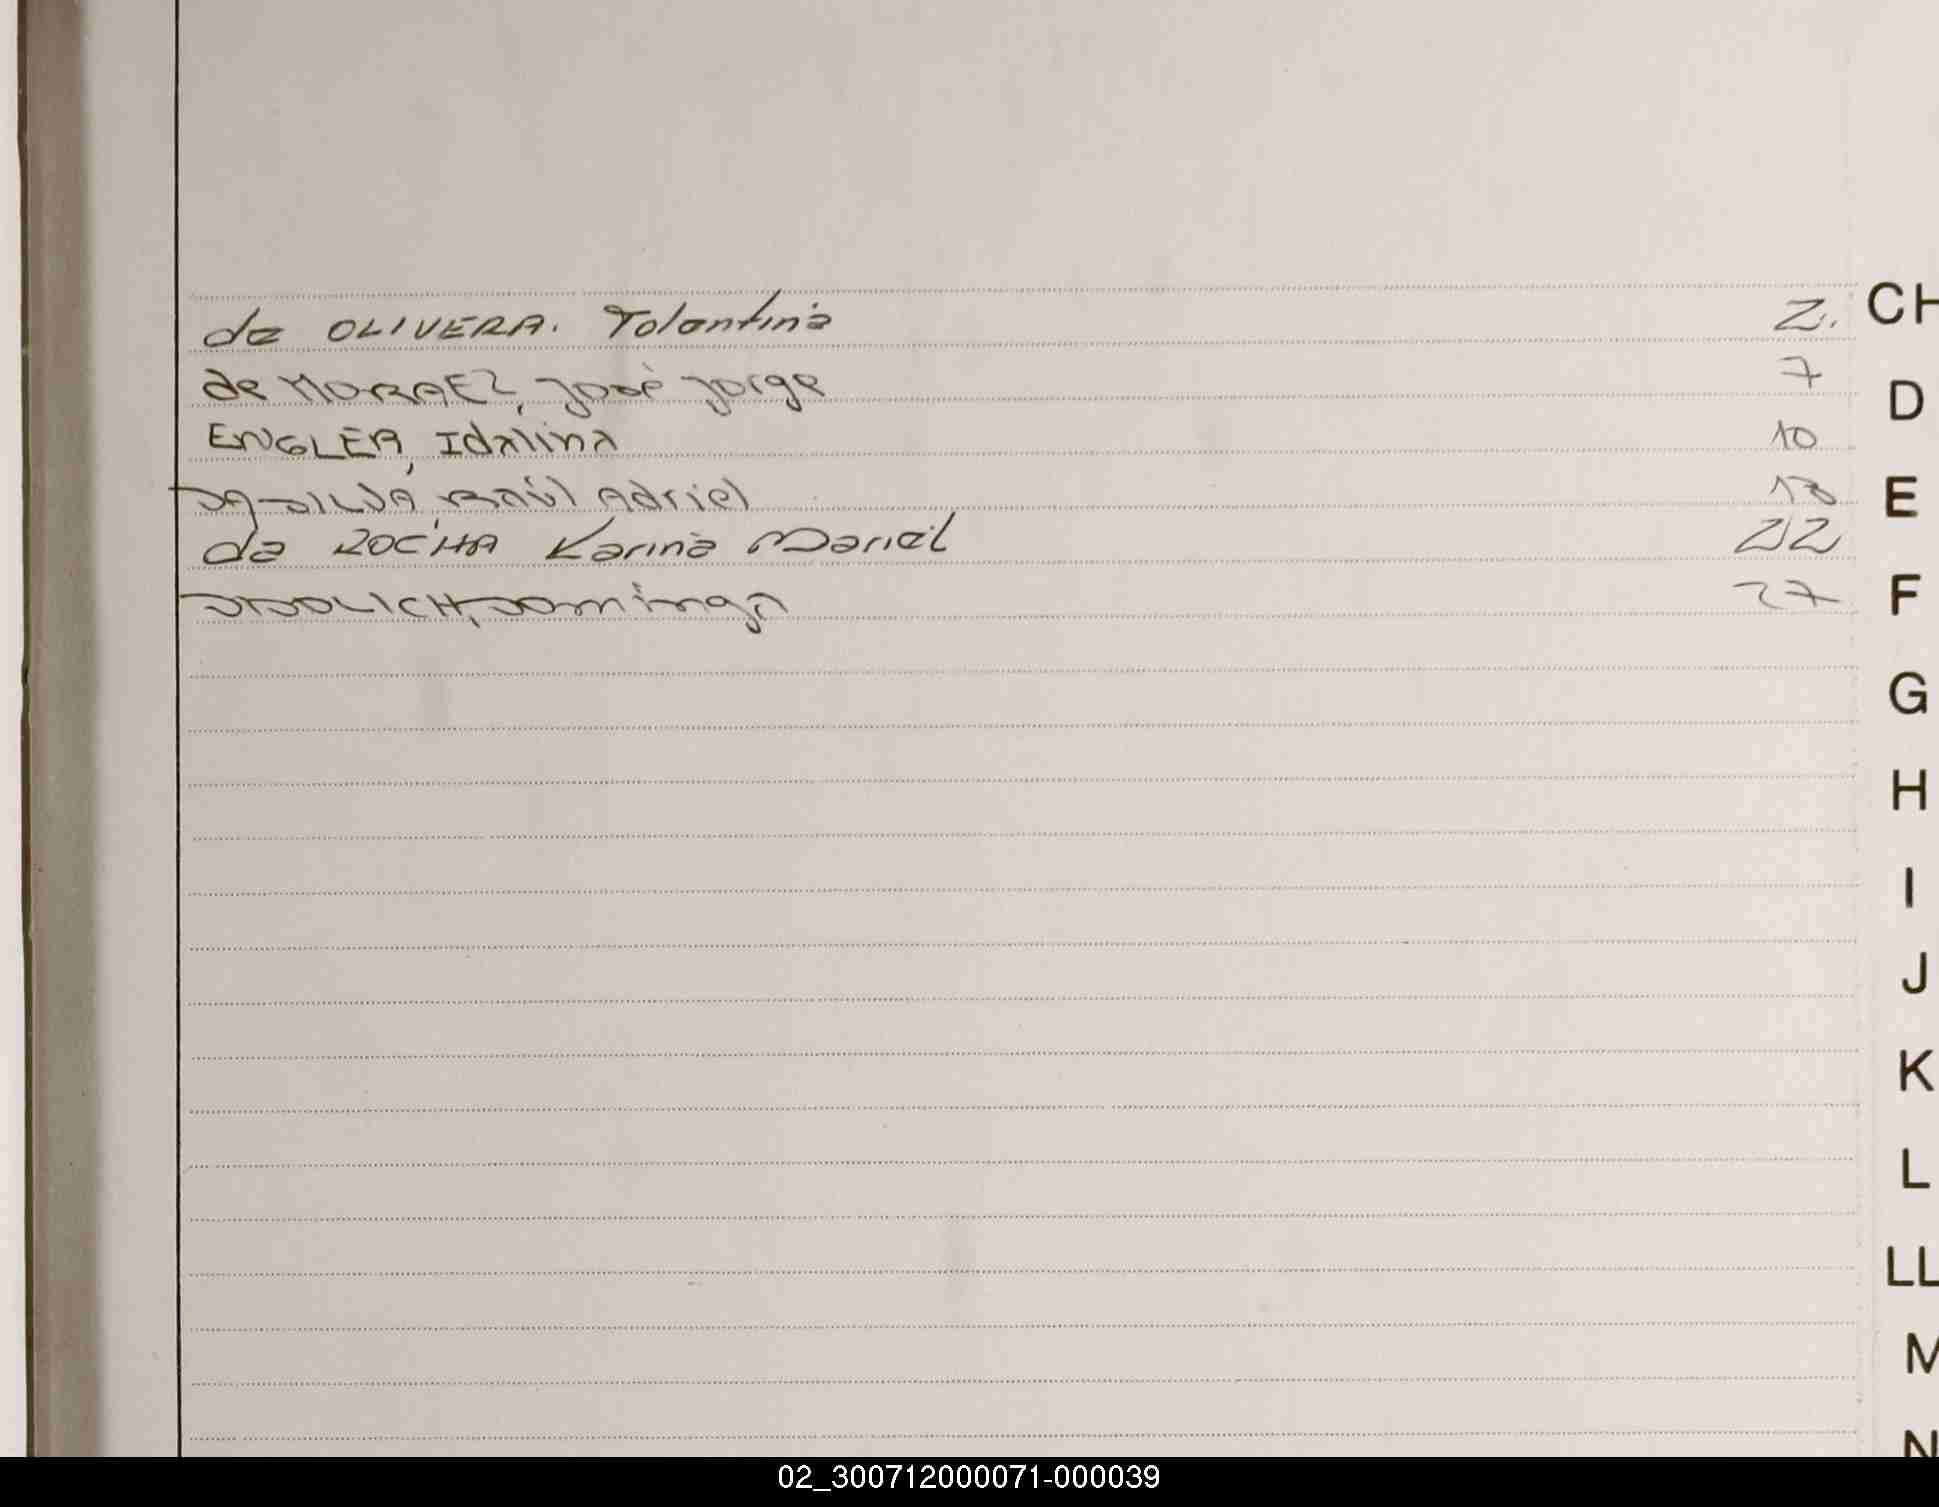 de OLIVERA. Tolantina 2.
de MORAEZ, José Jorge 7
ENGLER, Idalina 10
DA SILVA, Raúl Adriel 18
da ROCHA Karina Mariel 22
Domingo 27
CH
D
E
F
G
H
I
J
K
L
LL
M
N
02_300712000071-000039